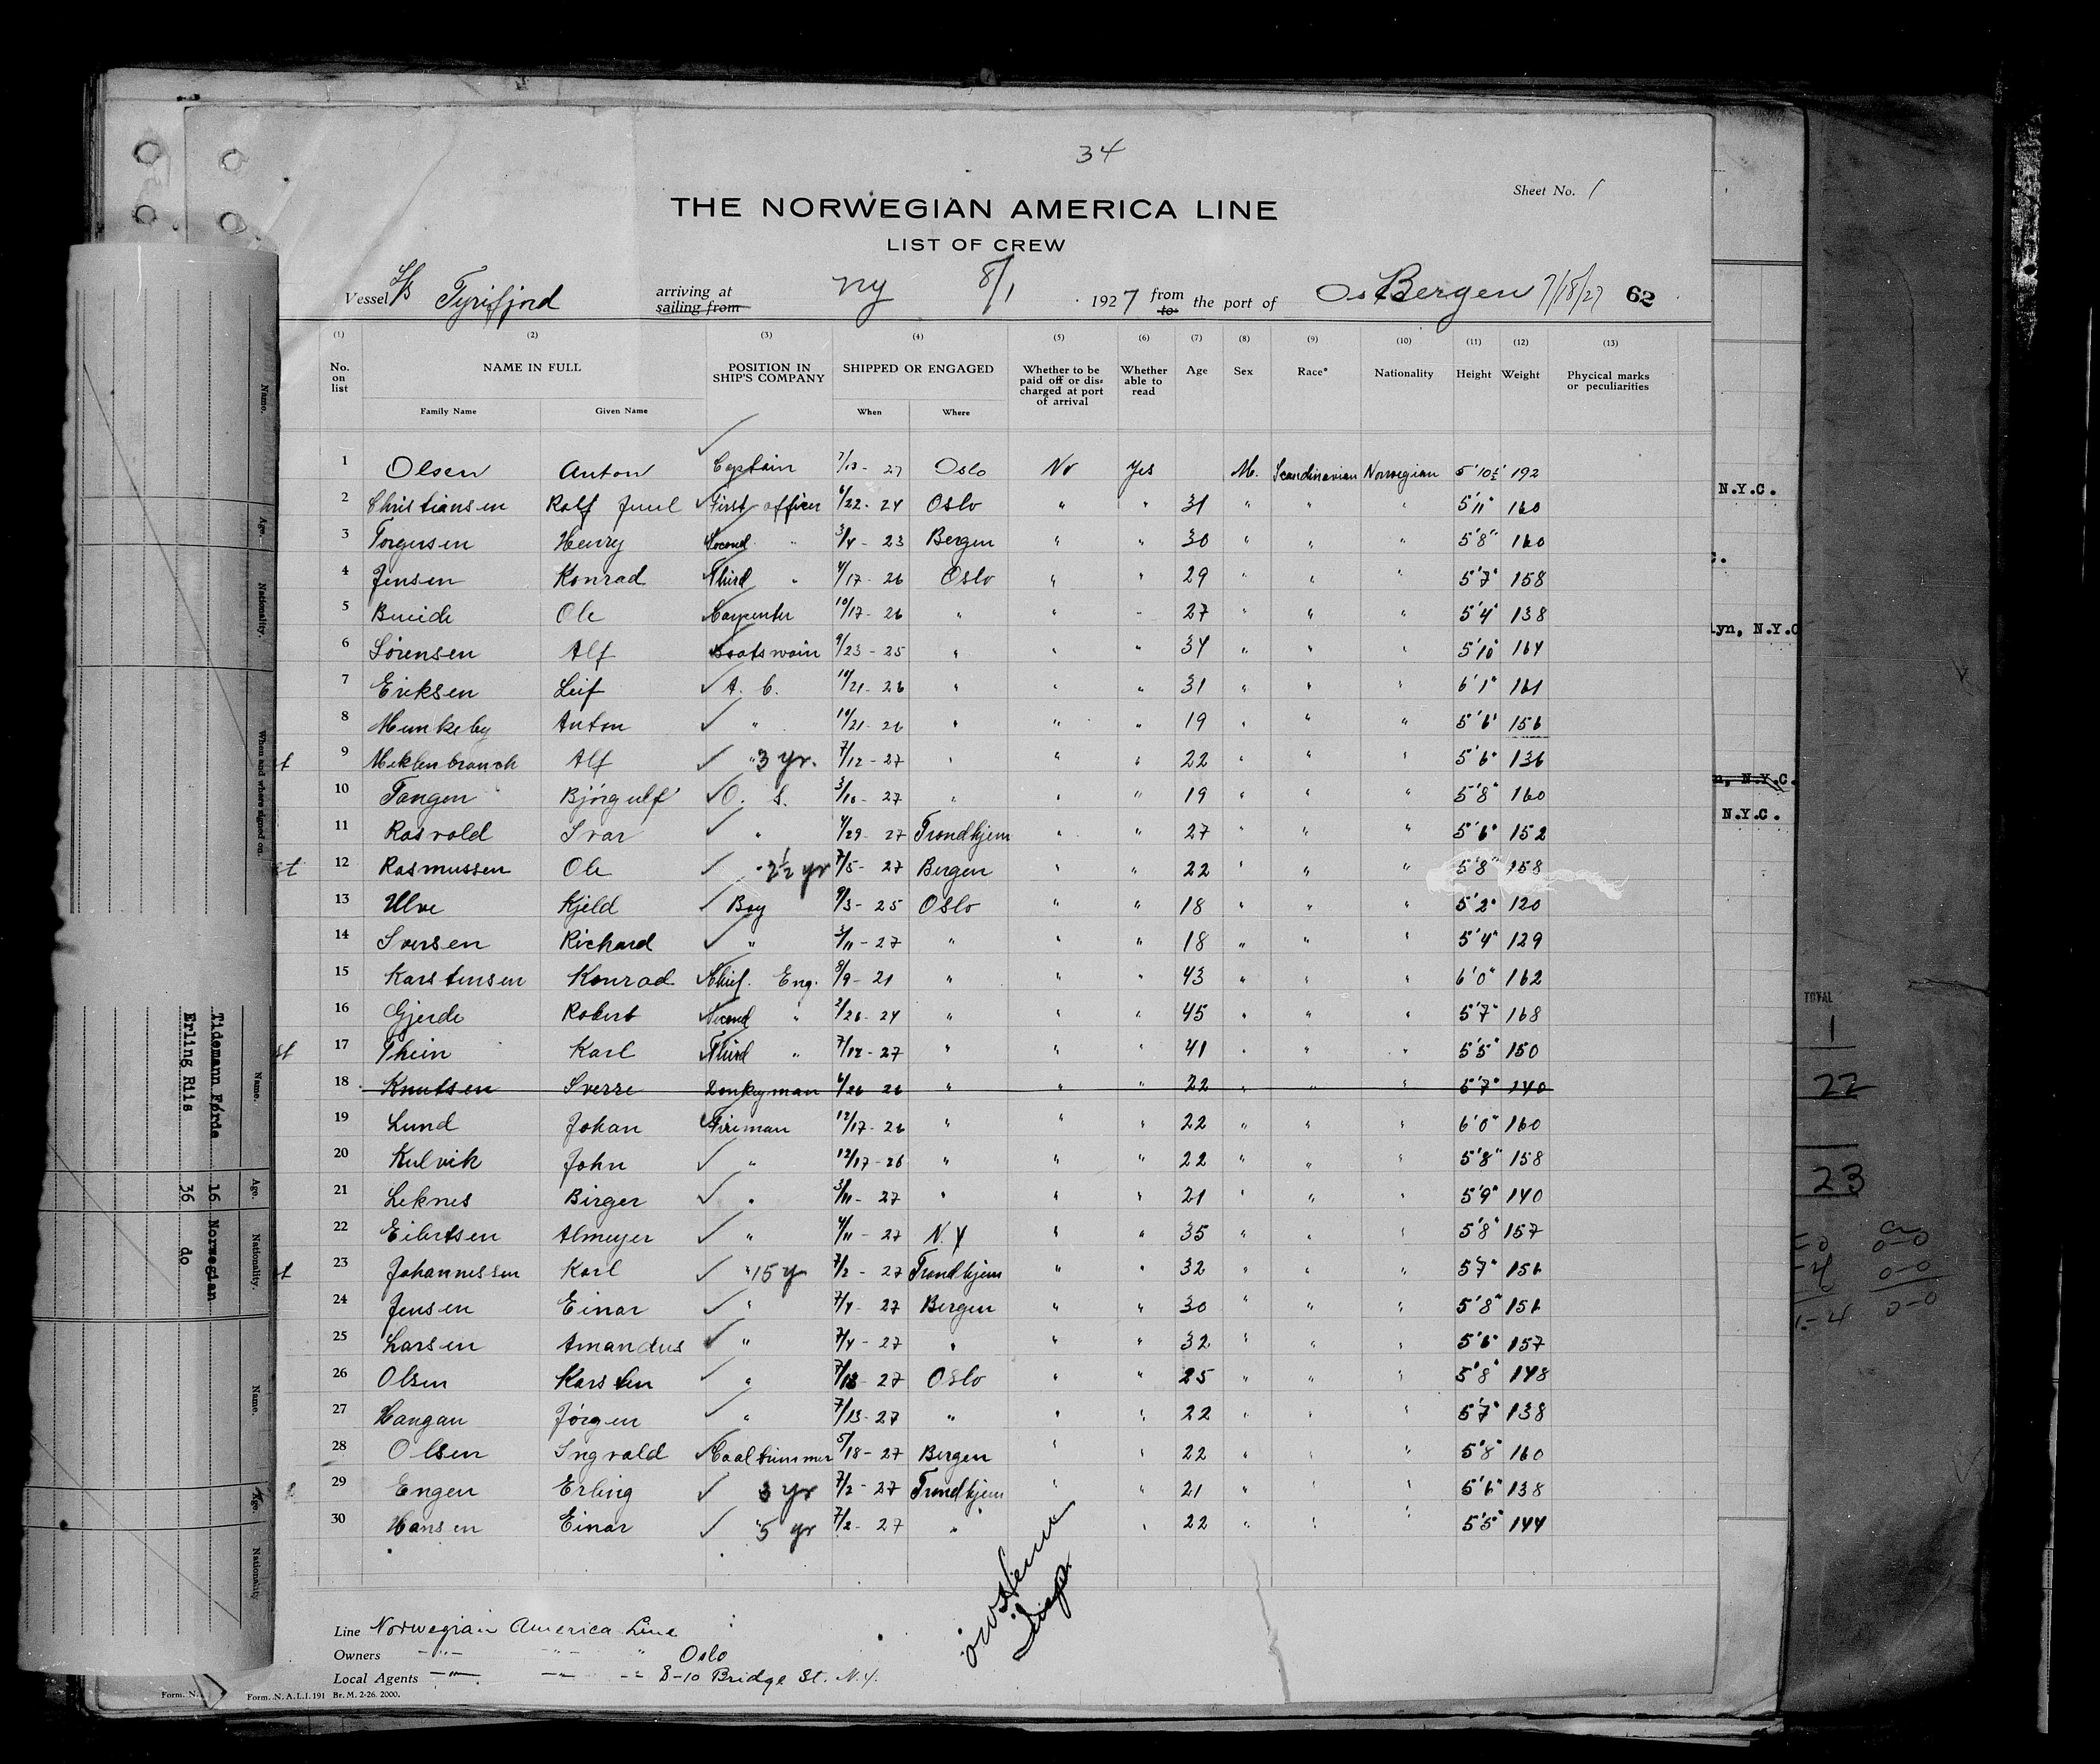 34
Sheet No. 1
THE NORWEGIAN AMERICA LINE
LIST OF CREW
Vessel S/S Tyrifjord arriving at sailing from NY 8/1 1927 from to the port of Bergen 7/18/27 62
(1) (2) (3) (4) (5) (6) (7) (8) (9) (10) (11) (12) (13)
No. on list NAME IN FULL POSITION IN SHIP'S COMPANY SHIPPED OR ENGAGED Whether to be paid off or discharged at port of arrival Whether able to read Age Sex Race* Nationality Height Weight Physical marks or peculiarities
Family Name Given Name When Where
1 Olsen Anton Captain 7/13-27 Oslo No Yes M. Scandinavian Norwegian 5'10½" 192
2 Christiansen Rolf Juul First officer 6/22-24 Oslo " " 31 " " " 5'11" 160
3 Torgersen Henry Second " 3/4-23 Bergen " " 30 " " " 5'8" 160
4 Jensen Konrad Third " 4/17-26 Oslo " " 29 " " " 5'7" 158
5 Ole Carpenter 10/17-26 " " " 27 " " " 5'4" 138
6 Sörensen Alf Boatswain 9/23-25 " " " 34 " " " 5'10" 164
7 Eriksen Leif A. B. 10/21-26 " " " 31 " " " 6'1" 161
8 Munkeby Anton " 10/21-26 " " " 19 " " " 5'6" 156
9 Meklenbrauch Alf " 3 yr. 7/12-27 " " " 22 " " " 5'6" 136
10 Tangen Björgulf O. S. 3/10-27 " " " 19 " " " 5'8" 160
11 Rosvold Ivar " 4/29-27 Trondhjem " " 27 " " " 5'6" 152
12 Rasmussen Ole " 2½ yr 7/5-27 Bergen " " 22 " " " 5'8" 158
13 Ulve Kjeld Boy 9/3-25 Oslo " " 18 " " " 5'2" 120
14 Iversen Richard " 3/11-27 " " " 18 " " " 5'4" 129
15 Karstensen Konrad Chief. Eng. 8/9-21 " " " 43 " " " 6'0" 162
16 Gjerde Robert Second " 2/26-24 " " " 45 " " " 5'7" 168
17 Thein Karl Third " 7/12-27 " " " 41 " " " 5'5" 150
18 Knutsen Sverre Donkeyman 4/26 26 " " " 22 " " " 5'7" 140
19 Lund Johan Fireman 12/17-26 " " " 22 " " " 6'0" 160
20 Kulvik John " 12/17-26 " " " 22 " " " 5'8" 158
21 Leknes Birger " 3/11-27 " " " 21 " " " 5'9" 140
22 Eilertsen Almeyer " 4/11-27 N.Y " " 35 " " " 5'8" 157
23 Johannessen Karl " 15 y 7/2-27 Trondhjem " " 32 " " " 5'7" 156
24 Jensen Einar " 7/4-27 Bergen " " 30 " " " 5'8" 156
25 Larsen Amandus " 7/4-27 " " " 32 " " " 5'6" 157
26 Olsen Karsten " 7/13-27 Oslo " " 25 " " " 5'8" 148
27 Haugan Jörgen " 7/13-27 " " " 22 " " " 5'7" 138
28 Olsen Ingvald Coaltrimmer 5/18-27 Bergen " " 22 " " " 5'8" 160
29 Engen Erling 3 yr 7/2-27 Trondhjem " " 21 " " " 5'6" 138
30 Hansen Einar " 5 yr 7/2-27 " " 22 " " " 5'5" 144
Line Norwegian America Line
Owners -"- -"- " Oslo
Local Agents -"- -"- -"- 8-10 Bridge St. N.Y.
Form. N. A. L. I. 191 Br. M. 2-26. 2000.
Form. N.
Name. Age. Nationality. When and where signed on.
Name. Age. Nationality.
Tidemann Førde 16 Norwegian
Erling Riis 36 do
Name. Age. Nationality
N.Y.C.
lyn, N.Y.C
n, N.Y.C.
N.Y.C.
TOTAL
1
22
23